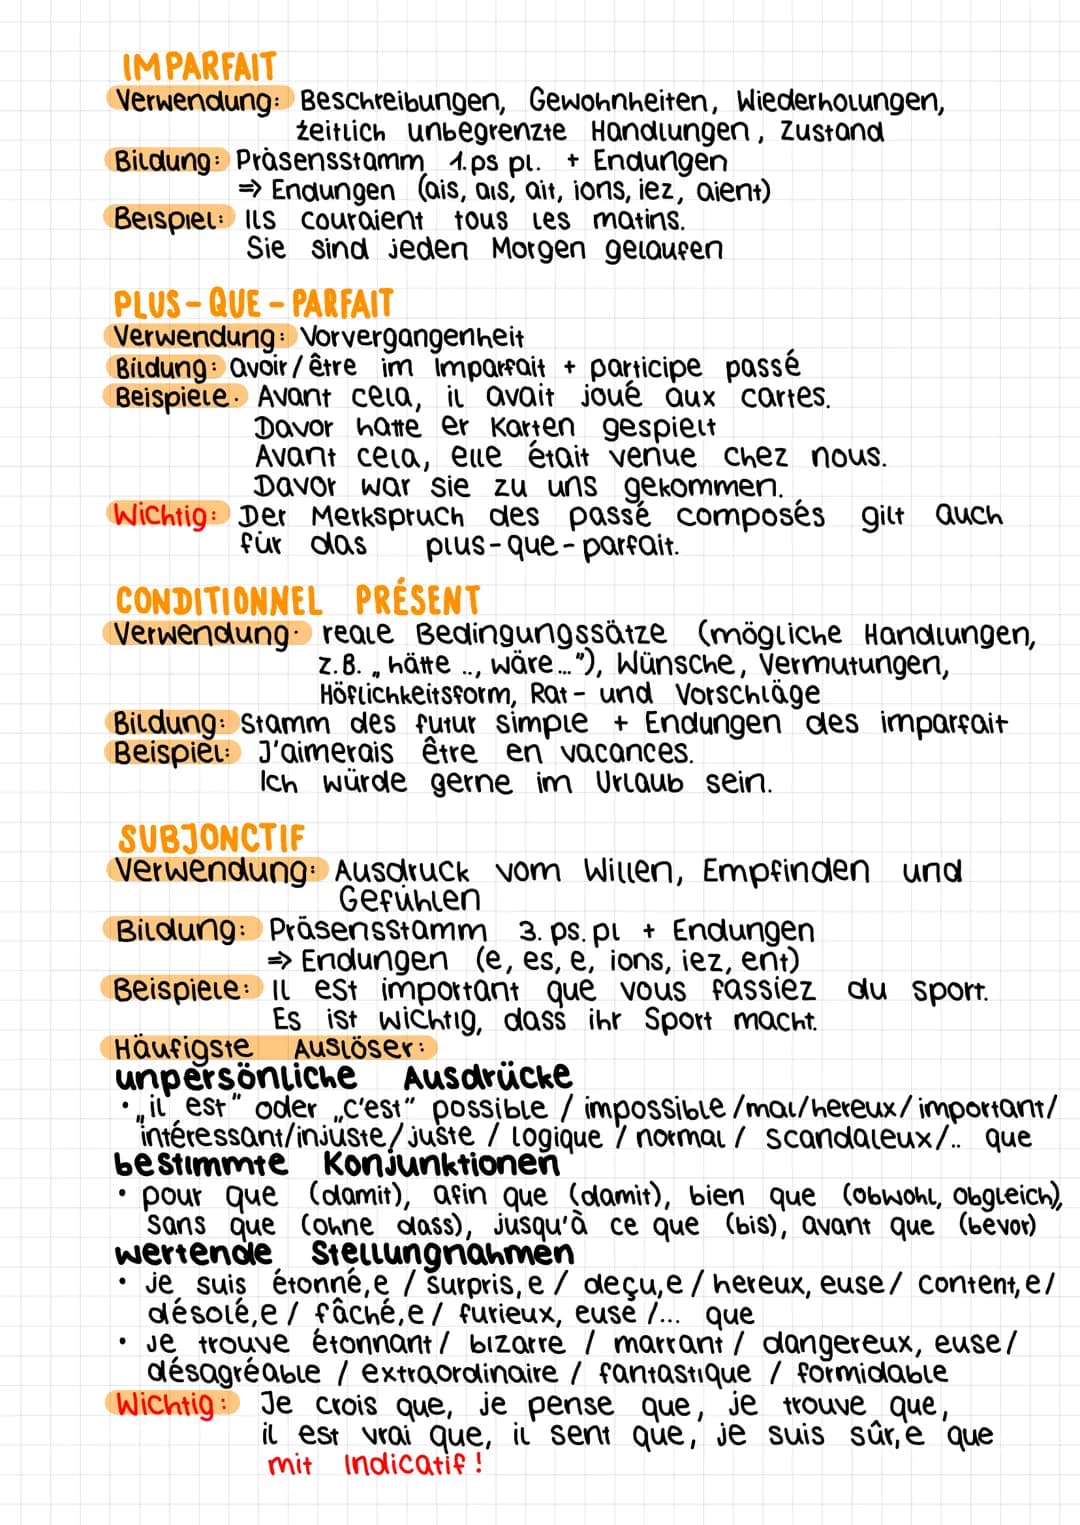 IMPARFAIT
Verwendung: Beschreibungen, Gewohnheiten, Wiederholungen,
zeitlich unbegrenzte Handlungen, Zustand
Bildung: Präsensstamm 1.ps pl. + Endungen
⇒ Endungen (ais, ais, ait, ions, iez, aient)
Beispiel: Ils couraient tous les matins.
Sie sind jeden Morgen gelaufen
PLUS-QUE-PARFAIT
Verwendung: Vorvergangenheit
Bildung: avoir/être im Imparfait + participe passé
Beispiele: Avant cela, il avait joué aux cartes.
Davor hatte er Karten gespielt
Avant cela, elle était venue chez nous.
Davor war sie zu uns gekommen.
Wichtig: Der Merkspruch des passé composés gilt auch
für das plus-que-parfait.
CONDITIONNEL PRÉSENT
Verwendung: reale Bedingungssätze (mögliche Handlungen,
z.B. „hätte .., wäre..."), Wünsche, Vermutungen,
Höflichkeitsform, Rat- und Vorschläge
Bildung: Stamm des futur simple + Endungen des imparfait
Beispiel: J'aimerais être en vacances.
Ich würde gerne im Urlaub sein.
SUBJONCTIF
Verwendung: Ausdruck vom Willen, Empfinden und
Gefühlen
Bildung: Präsensstamm 3. ps. pl + Endungen
⇒ Endungen (e, es, e, ions, iez, ent)
Beispiele: Il est important que vous fassiez du sport.
Es ist wichtig, dass ihr Sport macht.
Häufigste Auslöser:
unpersönliche Ausdrücke
• „il est" oder „c'est" possible / impossible /mal/hereux/important/
intéressant/injuste/juste / logique / normal / scandaleux/.. que
bestimmte Konjunktionen
• pour que (damit), afin que (damit), bien que (obwohl, obgleich),
sans que (ohne dass), jusqu'à ce que (bis), avant que (bevor)
wertende Stellungnahmen
• je suis étonné,e / surpris,e / deçu,e / hereux, euse/ content,e/
désolé,e / fâché,e / furieux, euse /... que
• Je trouve étonnant / bizarre / marrant / dangereux, euse/
désagréable / extraordinaire / fantastique / formidable
Wichtig: Je crois que, je pense que, je trouve que,
il est vrai que, il sent que, je suis sûr,e que
mit Indicatif!